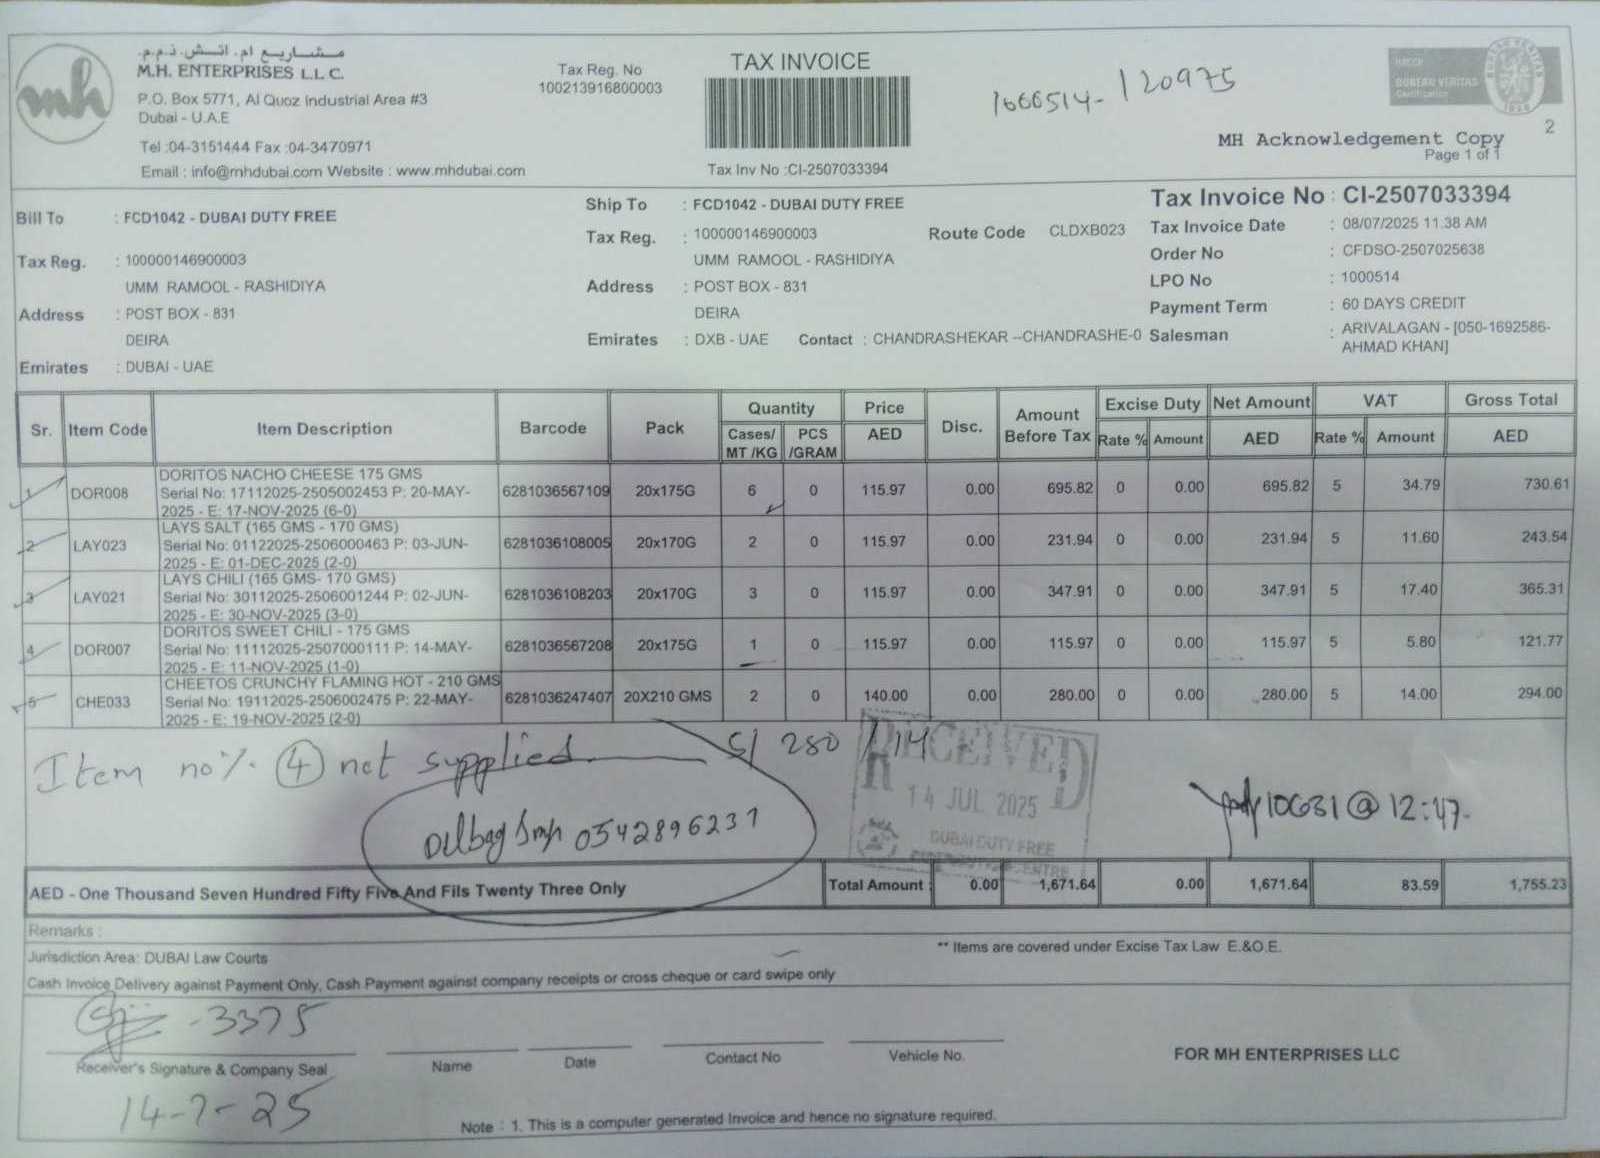 mh
مشاريع ام. اتش. ذ.م.م.
M.H. ENTERPRISES L.L.C.
P.O. Box 5771, Al Quoz Industrial Area #3
Dubai - U.A.E
Tel :04-3151444 Fax :04-3470971
Email : info@mhdubai.com Website : www.mhdubai.com
Tax Reg. No
100213916800003
TAX INVOICE
Tax Inv No :CI-2507033394
120975
BUREAU VERITAS
Certification
2
MH Acknowledgement Copy
Page 1 of 1
Bill To : FCD1042 - DUBAI DUTY FREE
Tax Reg. : 100000146900003
UMM RAMOOL - RASHIDIYA
Address : POST BOX - 831
DEIRA
Emirates : DUBAI - UAE
Ship To : FCD1042 - DUBAI DUTY FREE
Tax Reg. : 100000146900003
UMM RAMOOL - RASHIDIYA
Address : POST BOX - 831
DEIRA
Emirates : DXB - UAE Contact : CHANDRASHEKAR --CHANDRASHE-0
Route Code CLDXB023
Tax Invoice No : CI-2507033394
Tax Invoice Date : 08/07/2025 11.38 AM
Order No : CFDSO-2507025638
LPO No : 1000514
Payment Term : 60 DAYS CREDIT
Salesman : ARIVALAGAN - [050-1692586-
AHMAD KHAN]
Sr. Item Code Item Description Barcode Pack Quantity Price Disc. Amount Before Tax Excise Duty Net Amount VAT Gross Total
Cases/ MT /KG PCS /GRAM AED Rate % Amount AED Rate % Amount AED
1 DOR008 DORITOS NACHO CHEESE 175 GMS 6281036567109 20x175G 6 0 115.97 0.00 695.82 0 0.00 695.82 5 34.79 730.61
Serial No: 17112025-2505002453 P: 20-MAY-
2025 - E: 17-NOV-2025 (6-0)
2 LAY023 LAYS SALT (165 GMS - 170 GMS) 6281036108005 20x170G 2 0 115.97 0.00 231.94 0 0.00 231.94 5 11.60 243.54
Serial No: 01122025-2506000463 P: 03-JUN-
2025 - E: 01-DEC-2025 (2-0)
3 LAY021 LAYS CHILI (165 GMS- 170 GMS) 6281036108203 20x170G 3 0 115.97 0.00 347.91 0 0.00 347.91 5 17.40 365.31
Serial No: 30112025-2506001244 P: 02-JUN-
2025 - E: 30-NOV-2025 (3-0)
4 DOR007 DORITOS SWEET CHILI - 175 GMS 6281036567208 20x175G 1 0 115.97 0.00 115.97 0 0.00 115.97 5 5.80 121.77
Serial No: 11112025-2507000111 P: 14-MAY-
2025 - E: 11-NOV-2025 (1-0)
5 CHE033 CHEETOS CRUNCHY FLAMING HOT - 210 GMS 6281036247407 20X210 GMS 2 0 140.00 0.00 280.00 0 0.00 280.00 5 14.00 294.00
Serial No: 19112025-2506002475 P: 22-MAY-
2025 - E: 19-NOV-2025 (2-0)
Item no 4 not supplied
280 / 14
RECEIVED
14 JUL 2025
DUBAI DUTY FREE
0542896231
10631 @ 12:47.
AED - One Thousand Seven Hundred Fifty Five And Fils Twenty Three Only Total Amount : 0.00 1,671.64 0.00 1,671.64 83.59 1,755.23
Remarks :
Jurisdiction Area: DUBAI Law Courts
** Items are covered under Excise Tax Law E.&O.E.
Cash Invoice Delivery against Payment Only, Cash Payment against company receipts or cross cheque or card swipe only
-3375
Receiver's Signature & Company Seal Name Date Contact No Vehicle No.
FOR MH ENTERPRISES LLC
14-7-25
Note : 1. This is a computer generated Invoice and hence no signature required.